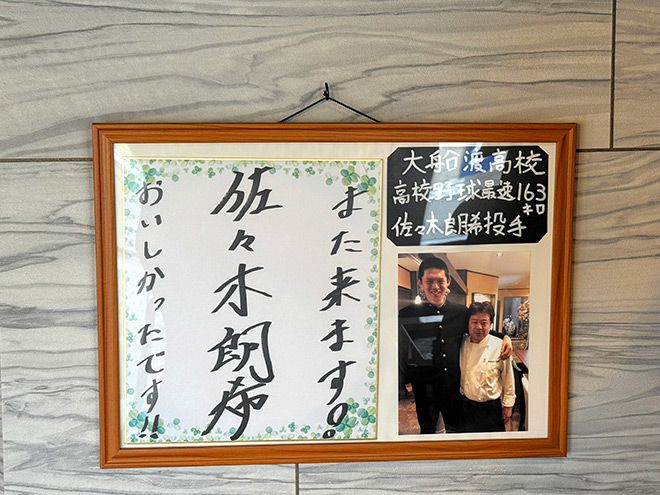 また来ます。
佐々木朗希
おいしかったです!!
大船渡高校
高校野球最速163
キロ
佐々木朗希投手